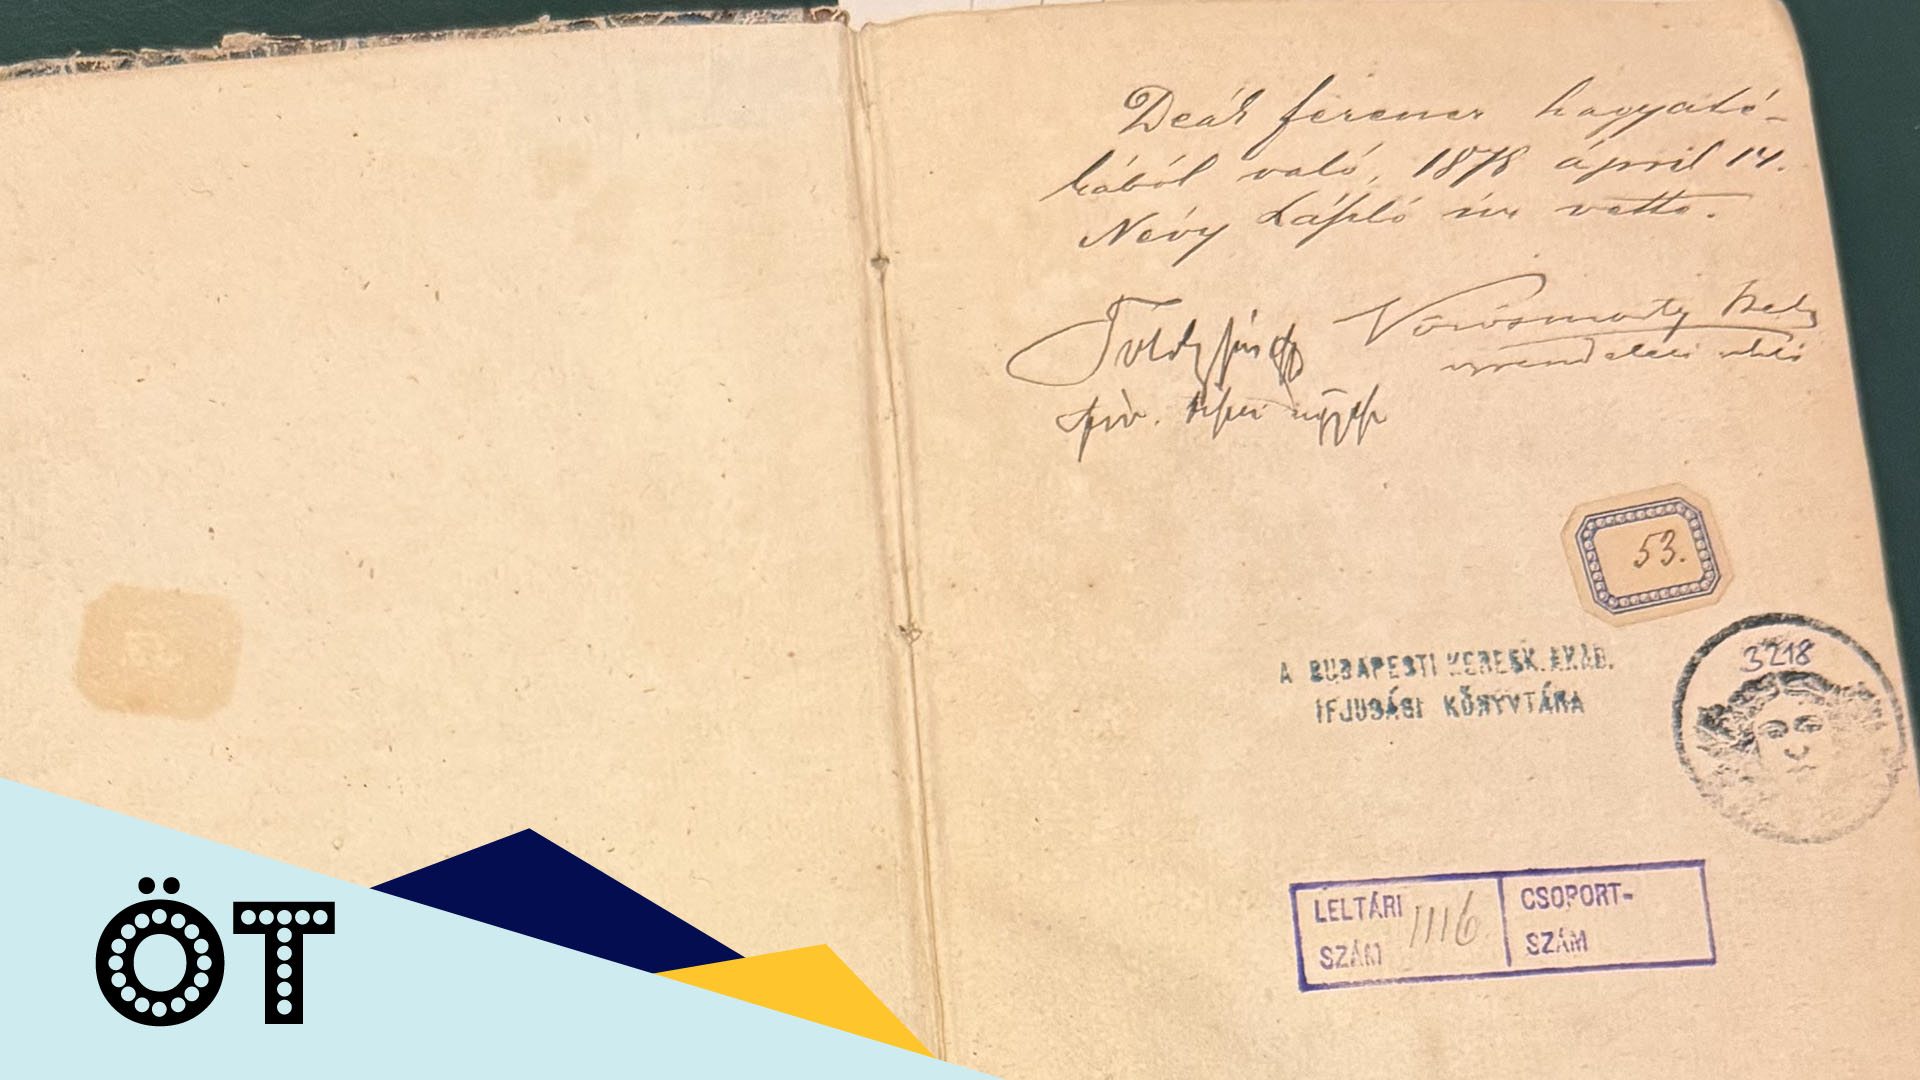 Deák Ferencz hagyaté-
kából való, 1878 ápril 14.
Névy László úr vette.
Vörösmarty
53.
3218
A BUDAPESTI KERESK. AKAD.
IFJUSÁGI KÖNYVTÁRA
LELTÁRI
SZÁM 1116
CSOPORT-
SZÁM
ÖT